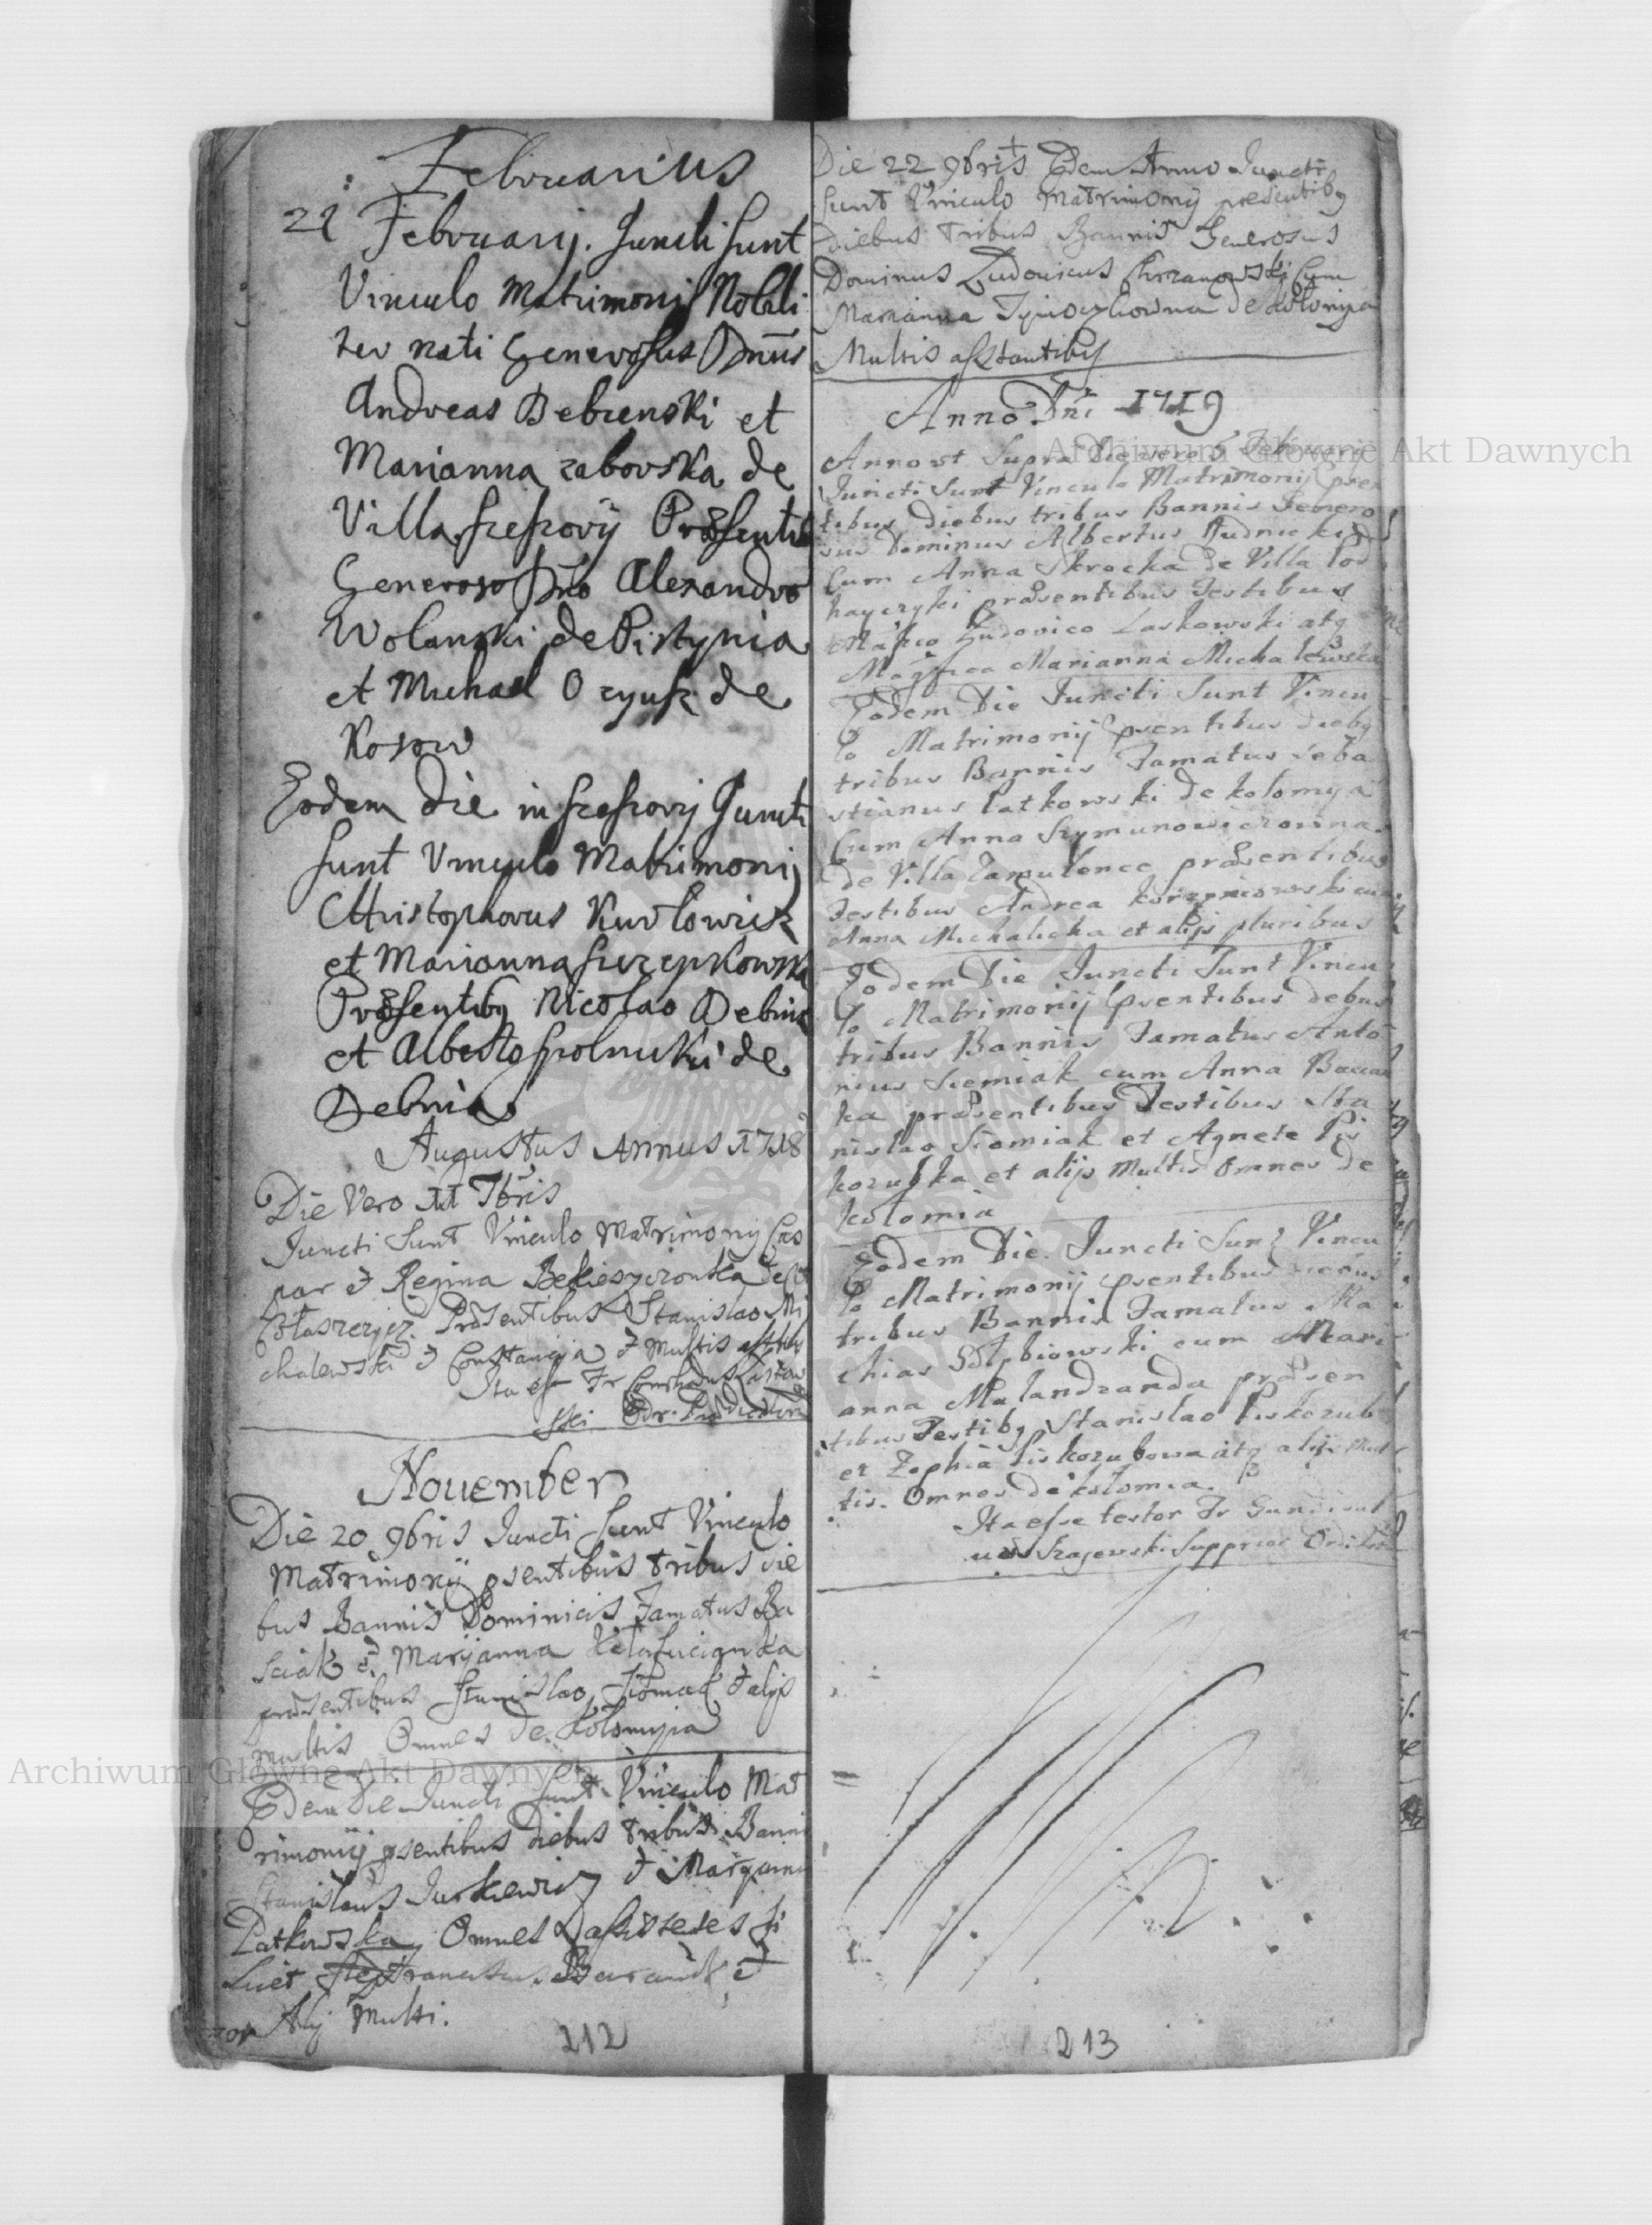 Februarius
21 Februarij. Juncti sunt
Vinculo Matrimonij Nobili
ter nati Generosus Dnus
Andreas Debrenski et
Marianna zabovska de
Villa szeszovij Præsentib
Generoso Dno Alexandro
Wolanski de Pistynia
et Michael Ozyusz de
Kosow
Eodem Die in szeszovij Juncti
sunt Vinculo Matrimonij
Christophorus Kurlowicz
et Marianna szczepkowska
Præsentiby Nicolao Debnic
et Alberto spolnicki de
Debnia
Augustus Annus 1718
Die Vero 7bris
Juncti Sunt Vinculo Matrimonij Cas
par et Regina
Præsentibus Stanislao Mi
chalewski et Constancija et Multis
Ita est Fr
ski Ord. Prædicatorum
November
Die 20 9bris Juncti sunt Vinculo
Matrimonij psentibus tribus die
bus Bannis Dominicis Famatus Ba
sciak et Maryanna
præsentibus Stanislao et alijs
multis Omnes de Kolomyia
Eodem Die Juncti sunt Vinculo Mat
rimonij psentibus diebus tribus Banni
Stanislaus Jurkiewicz et Maryanna
Patkowska Omnes
et
Alij Multi.
212
Die 22 9bris Eodem Anno Juncti
sunt Vinculo Matrimonij presentiby
diebus Tribus Bannis Generosus
Dominus Ludovicus Chrzanowski Cum
Marianna de Kolomyia
Multis asstantiby
Anno Dni 1719
Anno ut Supra Die vero 5 Februarij
Juncti Sunt Vinculo Matrimonij præ
tibus diebus tribus Bannis Genero
sus Dominus Albertus Rudnicki
Cum Anna Skrocka de Villa Pod
hayczyki præsentibus Testibus
Ludovico Laskowski atq
Magfica Marianna Michalewska
Eodem Die Juncti Sunt Vincu
lo Matrimonij psentibus dieby
tribus Bannis Famatus Seba
stianus Patkowski de kolomya
Cum Anna Szymunowiczowna
de Villa Zamulence præsentibus
Testibus Andrea korzeniowski cum
Anna Michalicha et alijs pluribus
Eodem Die Juncti Sunt Vincu
lo Matrimonij psentibus debus
tribus Bannis Famatus Anto
nius Siemiak cum Anna
ka præsentibus Testibus Sta
nislao Siomiak et Agnete Pis
kozubka et alijs Multis Omnes de
kolomia
Eodem Die Juncti Sunt Vincu
lo Matrimonij psentibus
tribus Bannis Famatus Ma
thias cum Mari
anna Malandzanda præsen
tibus Testiby Stanislao Piskozub
et Zophia Piskozubowa atq alijs Mul
tis. Omnes de kolomia.
Ita esse testor Fr
us Szajewski Supprior
213
Archiwum Główne Akt Dawnych
Archiwum Główne Akt Dawnych